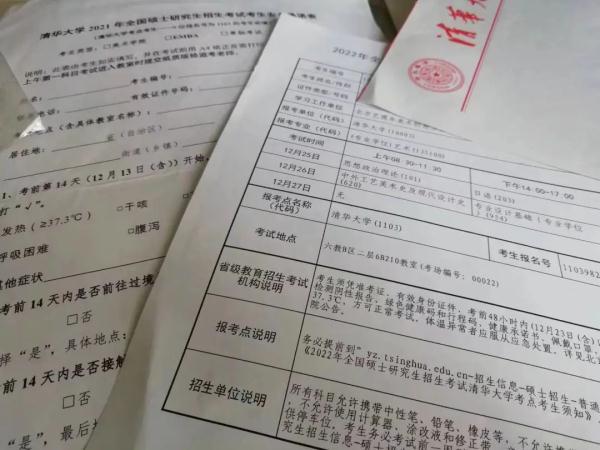 清华大学 2021 年全国硕士研究生招生考试考生
考生类型：□美术学院 □EMBA
说明：此表由考生如实填写，并在考试前用 A4 纸正反面打印
上午第一科目考试进入教室时提交纸质版给监考老师。
考生编号：
有效证件号码：
(含具体教室名称)：
省（自治区）
居住地：
街道（乡镇）
1、考前第 14 天（12 月 13 日（含））开始，
打“√”。
发热（≥37.3℃） □干咳
呼吸困难 □腹泻
其他症状
考前 14 天内是否前往过境
□否
择“是”，具体地点：
考前 14 天内是否接触
□否
“是”，最后
清华大
2022年全
考生编号
考生姓名/性别
证件类型/号码
学习工作单位
报考单位（代码） 清华大学(10003)
报考专业（代码） (专业学位)艺术(135100)
考试时间 上午08:30-11:30 下午14:00-17:00
12月25日 思想政治理论(101) 日语(203)
12月26日 中外工艺美术史及现代设计史(620) 专业设计基础（专业学位）(924)
12月27日 无
报考点名称（代码） 清华大学(1103) 考生报名号 1103982
考试地点 六教B区二层6B210教室(考场编号：00022)
省级教育招生考试机构说明
考生须凭准考证、有效身份证件、考前48小时内(12月23日(含)
检测阴性报告、绿色健康码和行程码、健康承诺书、佩戴口罩、
37.3℃，方可正常考试，体温异常者应服从应急处置，详见北京
报考点说明
务必提前到" yz.tsinghua.edu.cn-招生信息-硕士招生-普通
《2022年全国硕士研究生招生考试清华大学考点考生须知》
招生单位说明
所有科目允许携带中性笔、铅笔、橡皮等，不允许携
，不允许使用计算器、涂改液和修正带
供停车位。考生务必考试前一周
究生招生信息-硕士招生